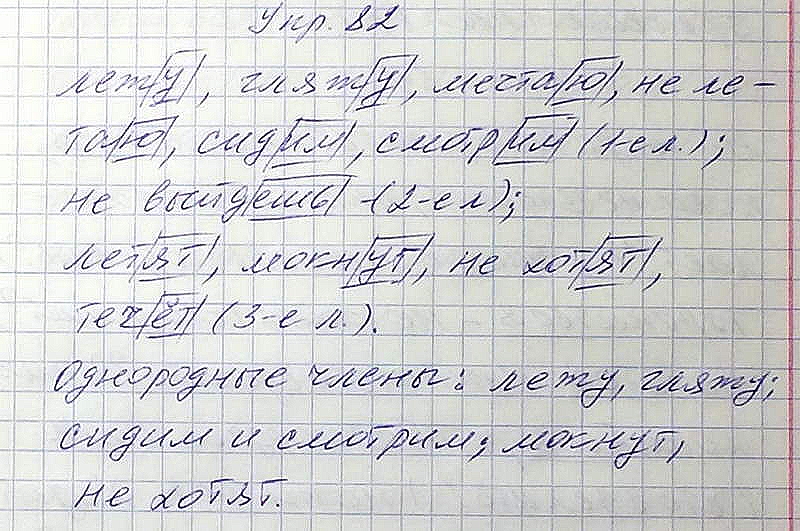 Упр. 82
лежу, гляжу, мечтаю, не ле-
таю, сидим, смотрим (1-е л.);
не выйдешь - (2-е л);
летят, мокнут, не хотят,
течёт (3-е л.).
Однородные члены: лежу, гляжу;
сидим и смотрим; мокнут,
не хотят.